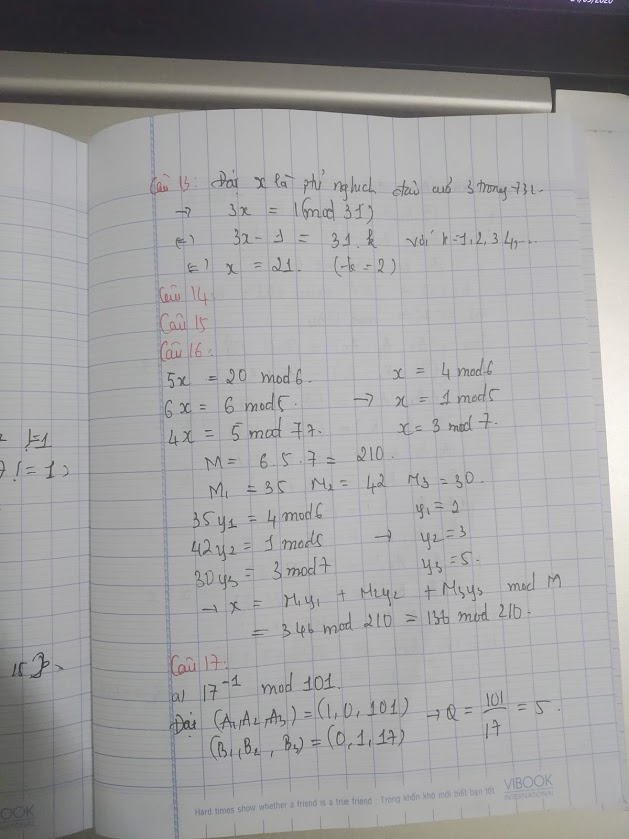 24/05/2020
Câu 13: Đặt x là phí nghịch đảo của 3 trong 731.
→ 3x = 1(mod 31)
(=) 3x - 1 = 31.k với k=1,2,3,4,...
(=) x = 21. (k = 2)
Câu 14
Câu 15
Câu 16:
5x = 20 mod 6. x = 4 mod 6
6x = 6 mod 5. → x = 1 mod 5
4x = 5 mod 77. x = 3 mod 7.
M = 6.5.7 = 210.
M1 = 35 M2 = 42 M3 = 30.
35y1 = 4 mod 6 y1 = 2
42y2 = 1 mod 5 → y2 = 3
30y3 = 3 mod 7 y3 = 5.
→ x = M1y1 + M2y2 + M3y3 mod M
= 346 mod 210 = 136 mod 210.
Câu 17:
a) 17^-1 mod 101.
Đặt (A1,A2,A3) = (1,0,101) → Q = 101/17 = 5.
(B1,B2,B3) = (0,1,17)
!=1
7!=1)
15
OOK
Hard times show whether a friend is a true friend : Trong khốn khó mới biết bạn tốt
ViBOOK
INTERNATIONAL